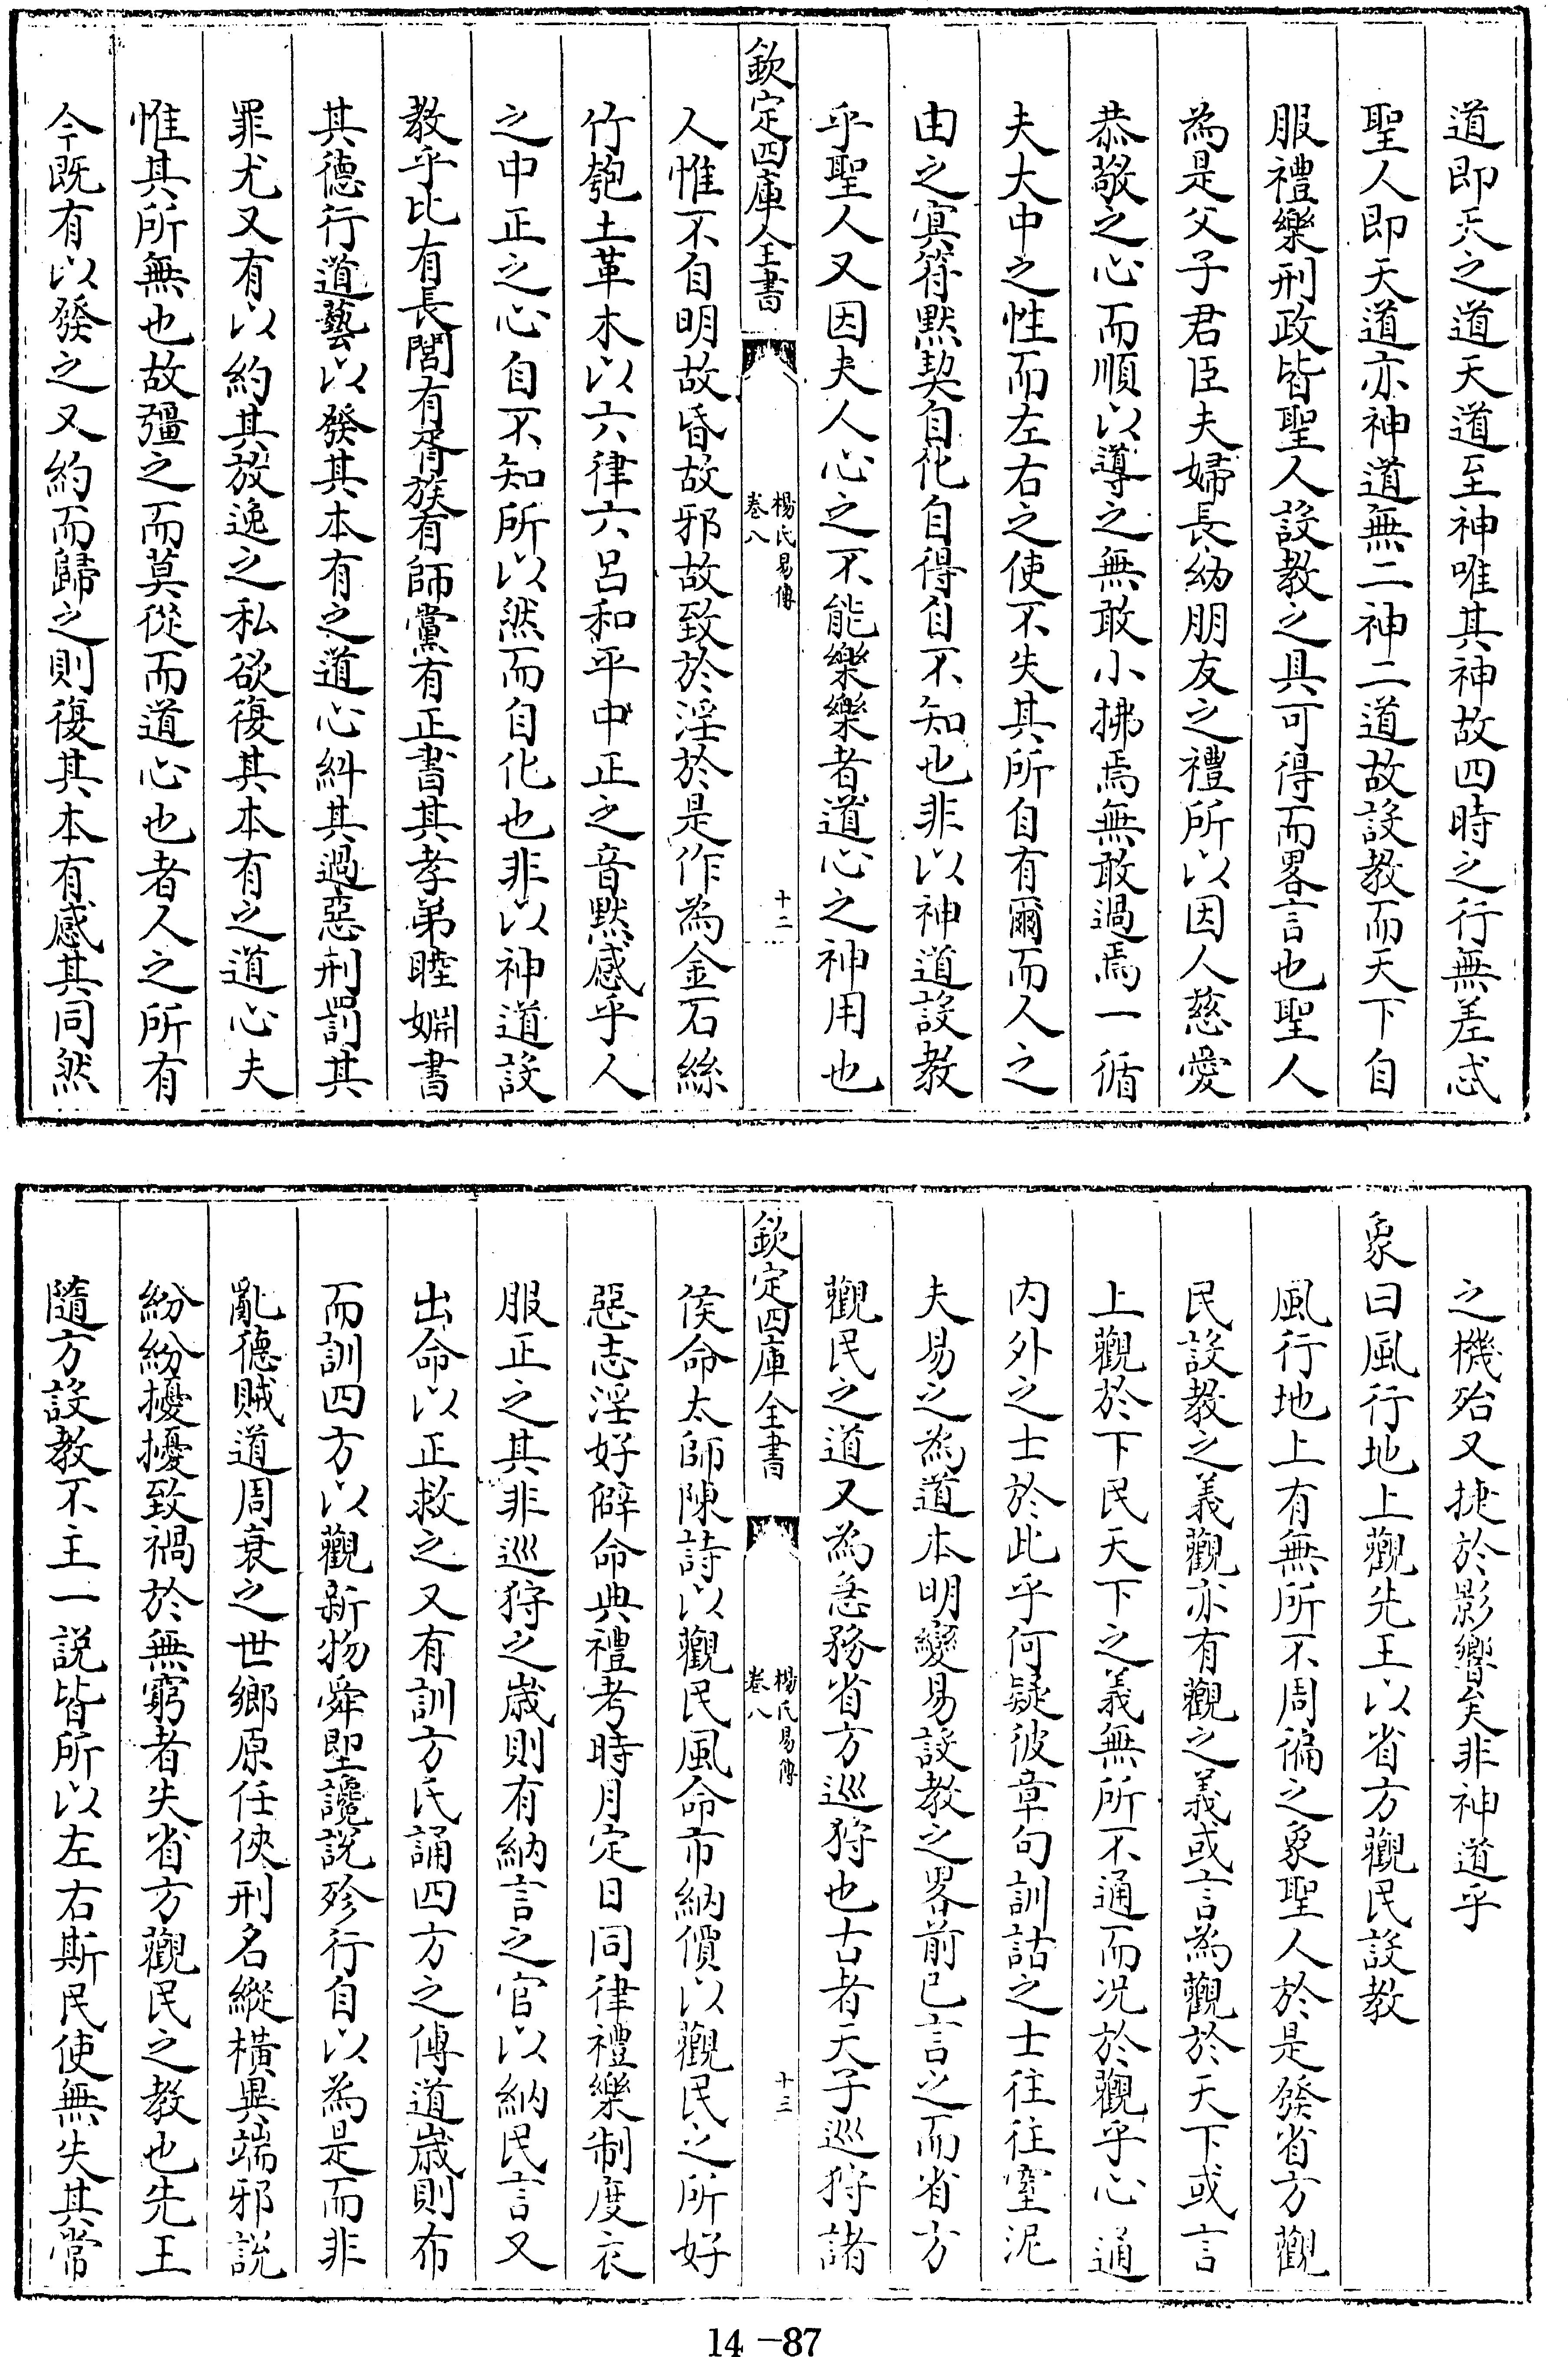 道即天之道天道至神唯其神故四時之行無差忒
聖人即天道亦神道無二神二道故設教而天下自
服禮樂刑政皆聖人設教之具可得而畧言也聖人
為是父子君臣夫婦長幼朋友之禮所以因人慈愛
恭敬之心而順以導之無敢小拂焉無敢過焉一循
夫大中之性而左右之使不失其所自有爾而人之
由之冥符默契自化自得自不知也非以神道設教
乎聖人又因夫人心之不能樂樂者道心之神用也
欽定四庫全書
楊氏易傳
卷八
十二
人惟不自明故昏故邪故致於淫於是作為金石絲
竹匏土革木以六律六呂和平中正之音默感乎人
之中正之心自不知所以然而自化也非以神道設
教乎比有長閭有胥族有師黨有正書其孝弟睦婣書
其德行道藝以發其本有之道心糾其過惡刑罰其
罪尤又有以約其放逸之私欲復其本有之道心夫
惟其所無也故彊之而莫從而道心也者人之所有
今既有以發之又約而歸之則復其本有感其同然
之機殆又捷於影響矣非神道乎
象曰風行地上觀先王以省方觀民設教
風行地上有無所不周徧之象聖人於是發省方觀
民設教之義觀亦有觀之義或言為觀於天下或言
上觀於下民天下之義無所不通而况於觀乎心通
內外之士於此乎何疑彼章句訓詁之士往往窒泥
夫易之為道本明變易設教之畧前已言之而省方
觀民之道又為急務省方巡狩也古者天子巡狩諸
欽定四庫全書
楊氏易傳
卷八
十三
侯命太師陳詩以觀民風命市納價以觀民之所好
惡志淫好僻命典禮考時月定日同律禮樂制度衣
服正之其非巡狩之歲則有納言之官以納民言又
出命以正救之又有訓方氏誦四方之傳道歲則布
而訓四方以觀新物舜堲讒說殄行自以為是而非
亂德賊道周衰之世鄉原任俠刑名縱橫異端邪說
紛紛擾擾致禍於無窮者失省方觀民之教也先王
隨方設教不主一說皆所以左右斯民使無失其常
14-87